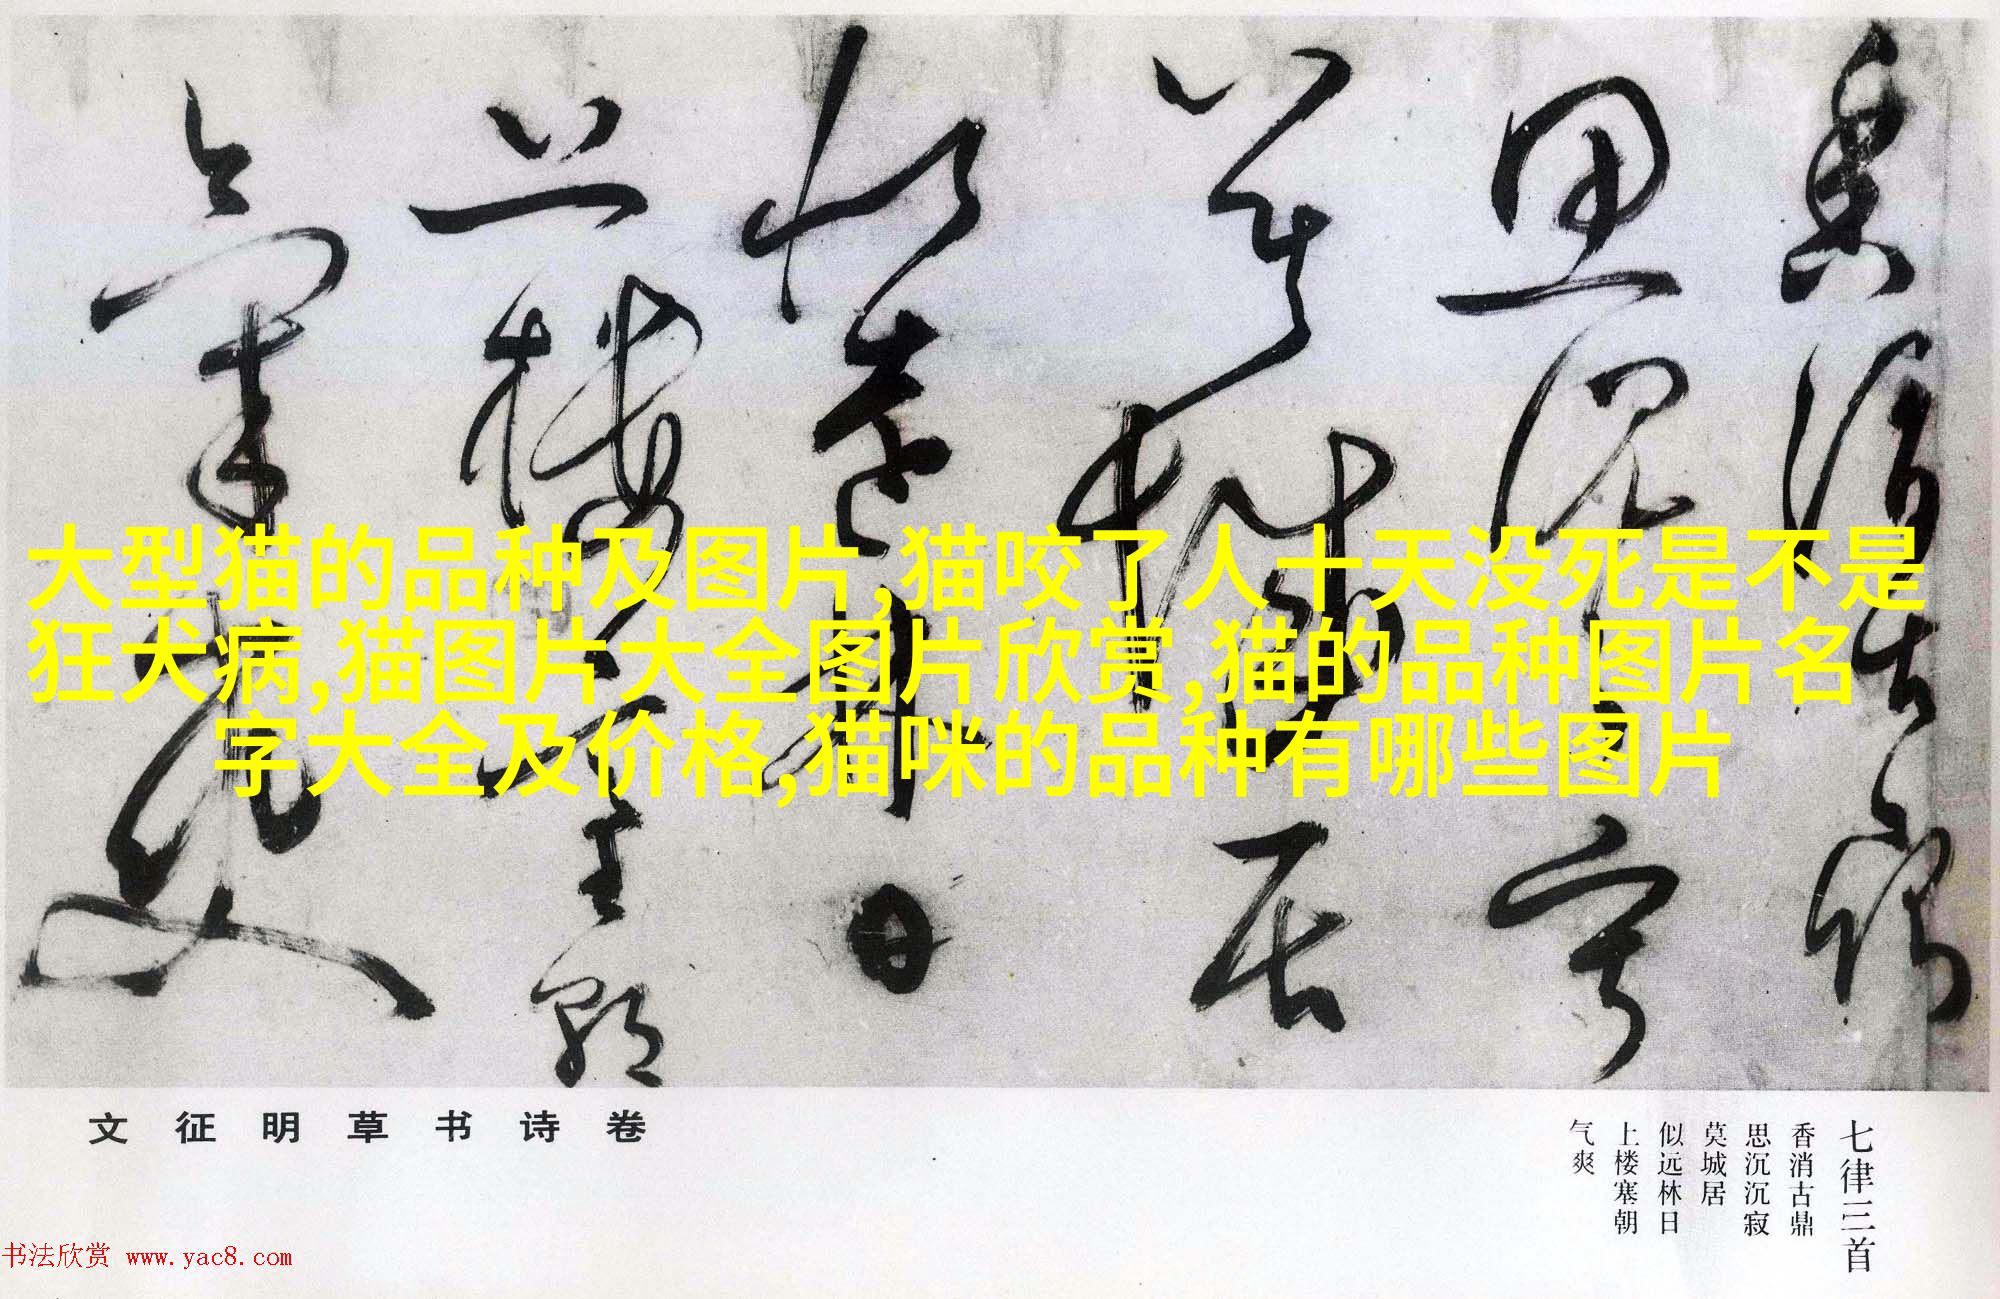 大型猫的品种及图片,猫咬了人十天没死是不是
狂犬病,猫图片大全图片欣赏,猫的品种图片名
字大全及价格,猫咪的品种有哪些图片
香消古鼎
思沉沉寂
莫城居
似远林日
上楼塞朝
气爽
文征明草书诗卷
七律三首
香消古鼎
思沉沉寂
莫城居
似远林日
上楼塞朝
气爽
书法欣赏 www.yac8.com